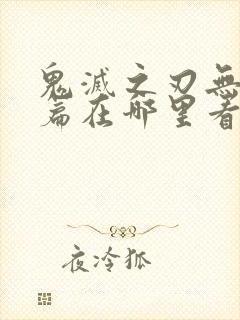 鬼滅之刃無
篇在哪里看
夜冷狐